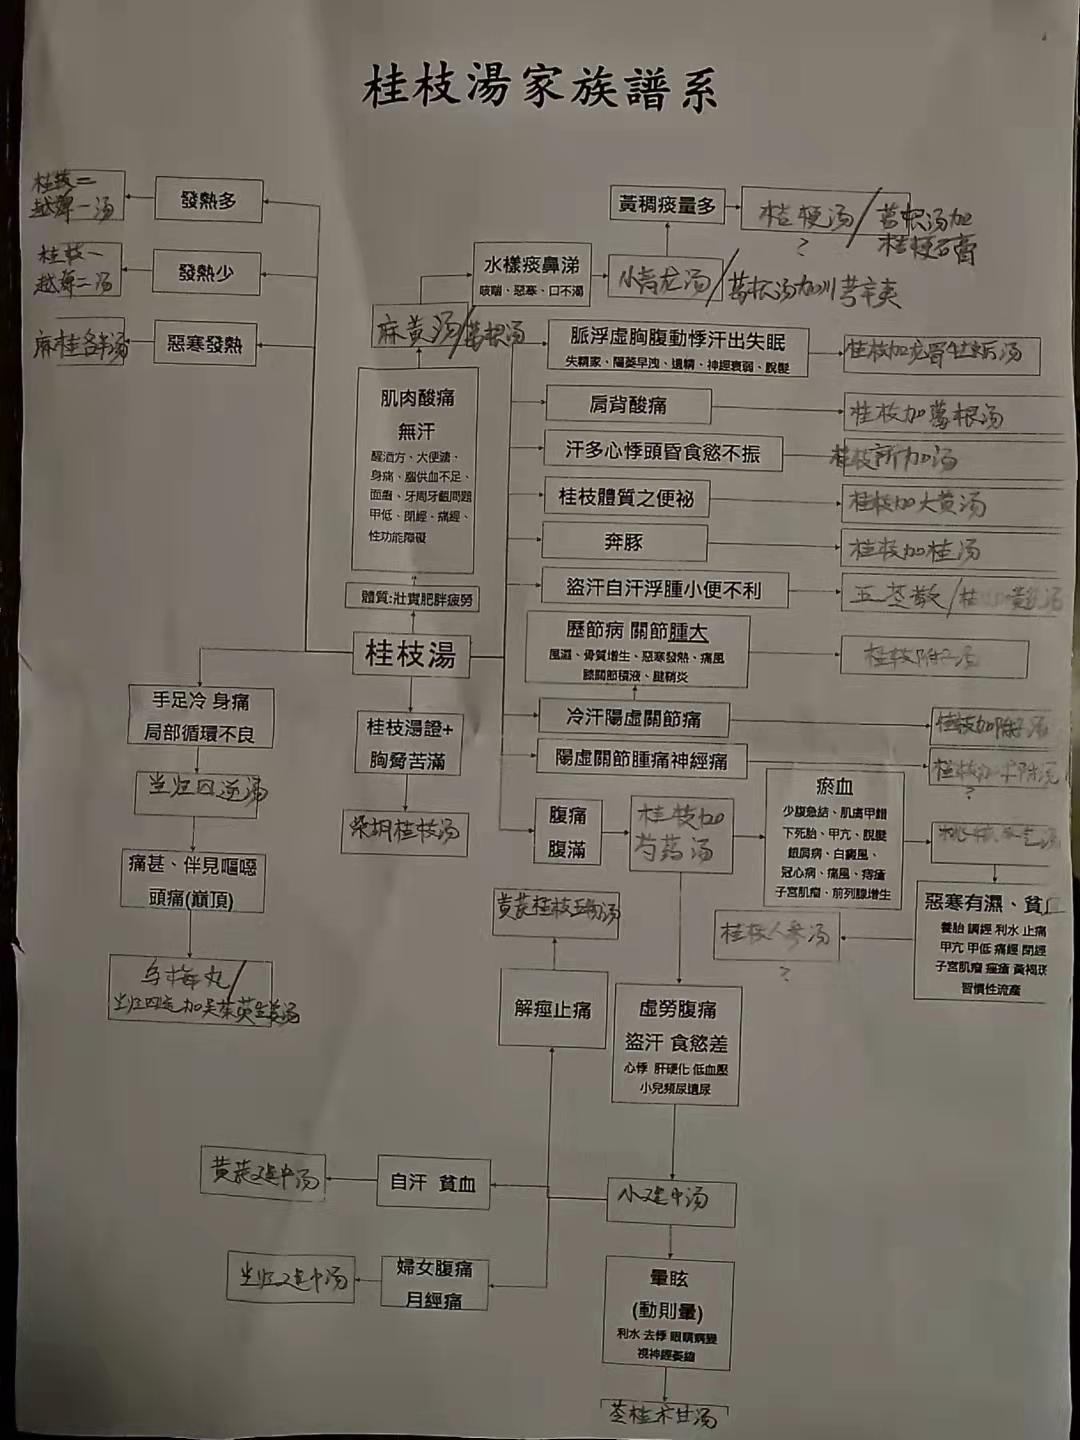 桂枝湯家族譜系
桂枝二
越婢一汤
發熱多
桂枝一
越婢二汤
發熱少
麻桂各半汤
惡寒發熱
黃稠痰量多
桔梗汤/葛根汤加
桔梗石膏
?
水樣痰鼻涕
咳喘、惡寒、口不渴
小青龙汤/葛根汤加川芎辛夷
麻黄汤/葛根汤
肌肉酸痛
無汗
醒酒方、大便
身痛、腦供血不足、
面癱、牙周牙齦問題
甲低、閉經、痛經、
性功能障礙
體質:壯實肥胖疲勞
桂枝湯
脈浮虛胸腹動悸汗出失眠
失精家、陽萎早洩、遺精、神經衰弱、脫髮
桂枝加龙骨牡蛎汤
肩背酸痛
桂枝加葛根汤
汗多心悸頭昏食慾不振
桂枝新加汤
桂枝體質之便祕
桂枝加大黄汤
奔豚
桂枝加桂汤
盜汗自汗浮腫小便不利
五苓散/桂
歷節病 關節腫大
風濕、骨質增生、惡寒發熱、痛風
膝關節積液、腱鞘炎
桂枝附子汤
冷汗陽虛關節痛
桂枝加附子汤
陽虛關節腫痛神經痛
桂枝加
?
手足冷 身痛
局部循環不良
当归四逆汤
痛甚、伴見嘔噁
頭痛(巔頂)
乌梅丸/
当归四逆加吴茱萸生姜汤
桂枝湯證+
胸脅苦滿
柴胡桂枝汤
腹痛
腹滿
桂枝加
芍药汤
瘀血
少腹急結、肌膚甲錯
下死胎、甲亢、脫髮
銀屑病、白癜風、
冠心病、痛風、痔瘡
子宮肌瘤、前列腺增生
惡寒有濕、貧血
養胎 調經 利水 止痛
甲亢 甲低 痛經 閉經
子宮肌瘤 痤瘡 黃褐斑
習慣性流產
桂枝人参汤
?
黄芪桂枝五物汤
解痙止痛
虛勞腹痛
盜汗 食慾差
心悸 肝硬化 低血壓
小兒頻尿遺尿
小建中汤
自汗 貧血
黄芪建中汤
婦女腹痛
月經痛
当归建中汤
暈眩
(動則暈)
利水 去悸 眼睛病變
視神經萎縮
苓桂术甘汤